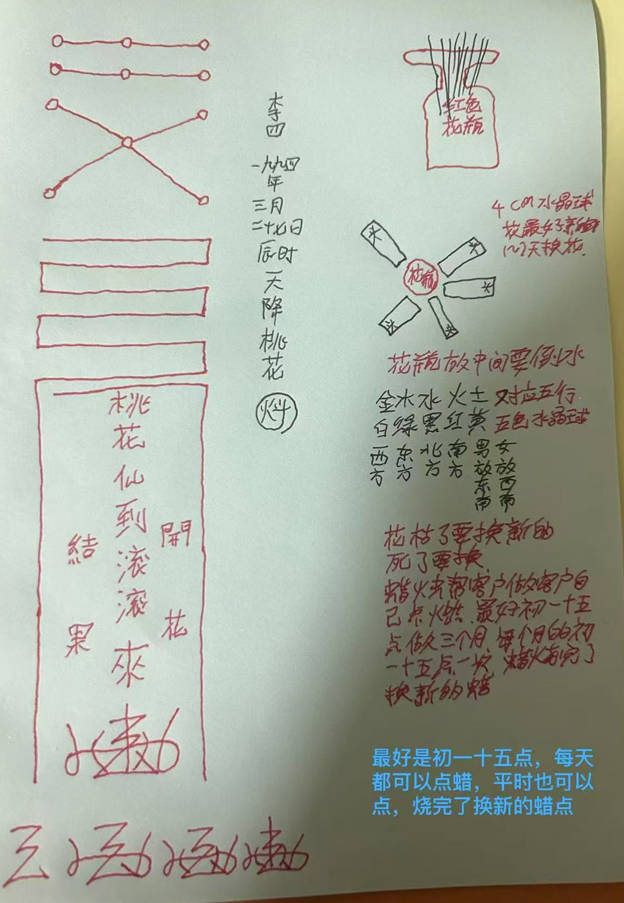 李四
一九九四年三月二十七日辰时天降桃花
桃花仙到滚滚來
開花
結果
红色
花瓶
4 cm 水晶球
花最好了新鲜
天换花
花瓶
花瓶放中间要倒水
金木水火土 对应五行
白绿黑红黄 五色水晶球
西方 东方 北方 南方 男放东南 女放西南
花枯了要换新的
死了要换
蜡火来帮客户做客户自
己点火烘 最好初一十五
点做三个月 每个月的初
一十五点一次 蜡火有完了
换新的蜡
最好是初一十五点，每天
都可以点蜡，平时也可以
点，烧完了换新的蜡点